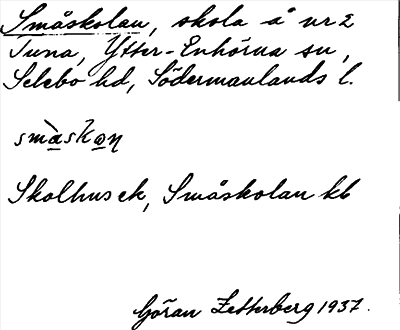 Småskolan, skola å nr 2
Tuna, Ytter-Enhörna sn,
Selebo hd, Södermanlands l.
Skolhus ek, Småskolan kb
Göran Zetterberg 1937.